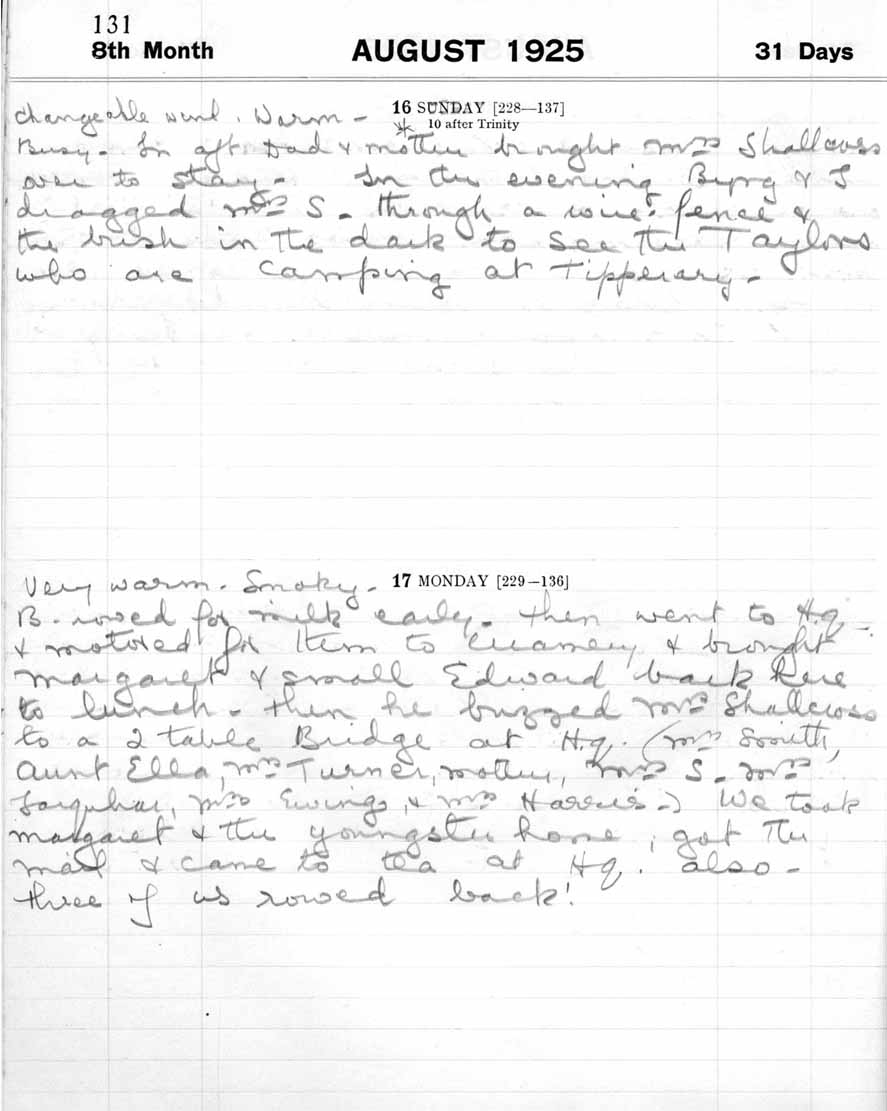 131
8th Month AUGUST 1925 31 Days
changeable wind. Warm - 16 SUNDAY [228—137]
10 after Trinity
Busy - In aft. Dad & mother brought Mrs Shallcross
over to stay - In the evening & I
dragged Mrs S - through a wire fence &
the brush in the dark to see the Taylors
who are camping at Tipperary -
Very warm - Smoky - 17 MONDAY [229—136]
B. rowed for milk early - then went to H.q.
& motored for them to creamery & brought
margaret & small Edward back here
to lunch - then he buzzed Mrs Shallcross
to a 2 table Bridge at H.q. (Mrs Smith,
Aunt Ella, Mrs Turner, mother, Mrs S - Mrs
Farquhar, Mrs Ewing, & Mrs Harris -) We took
margaret & the youngster home, got the
mail & came to tea at Hq. also -
three of us rowed back!